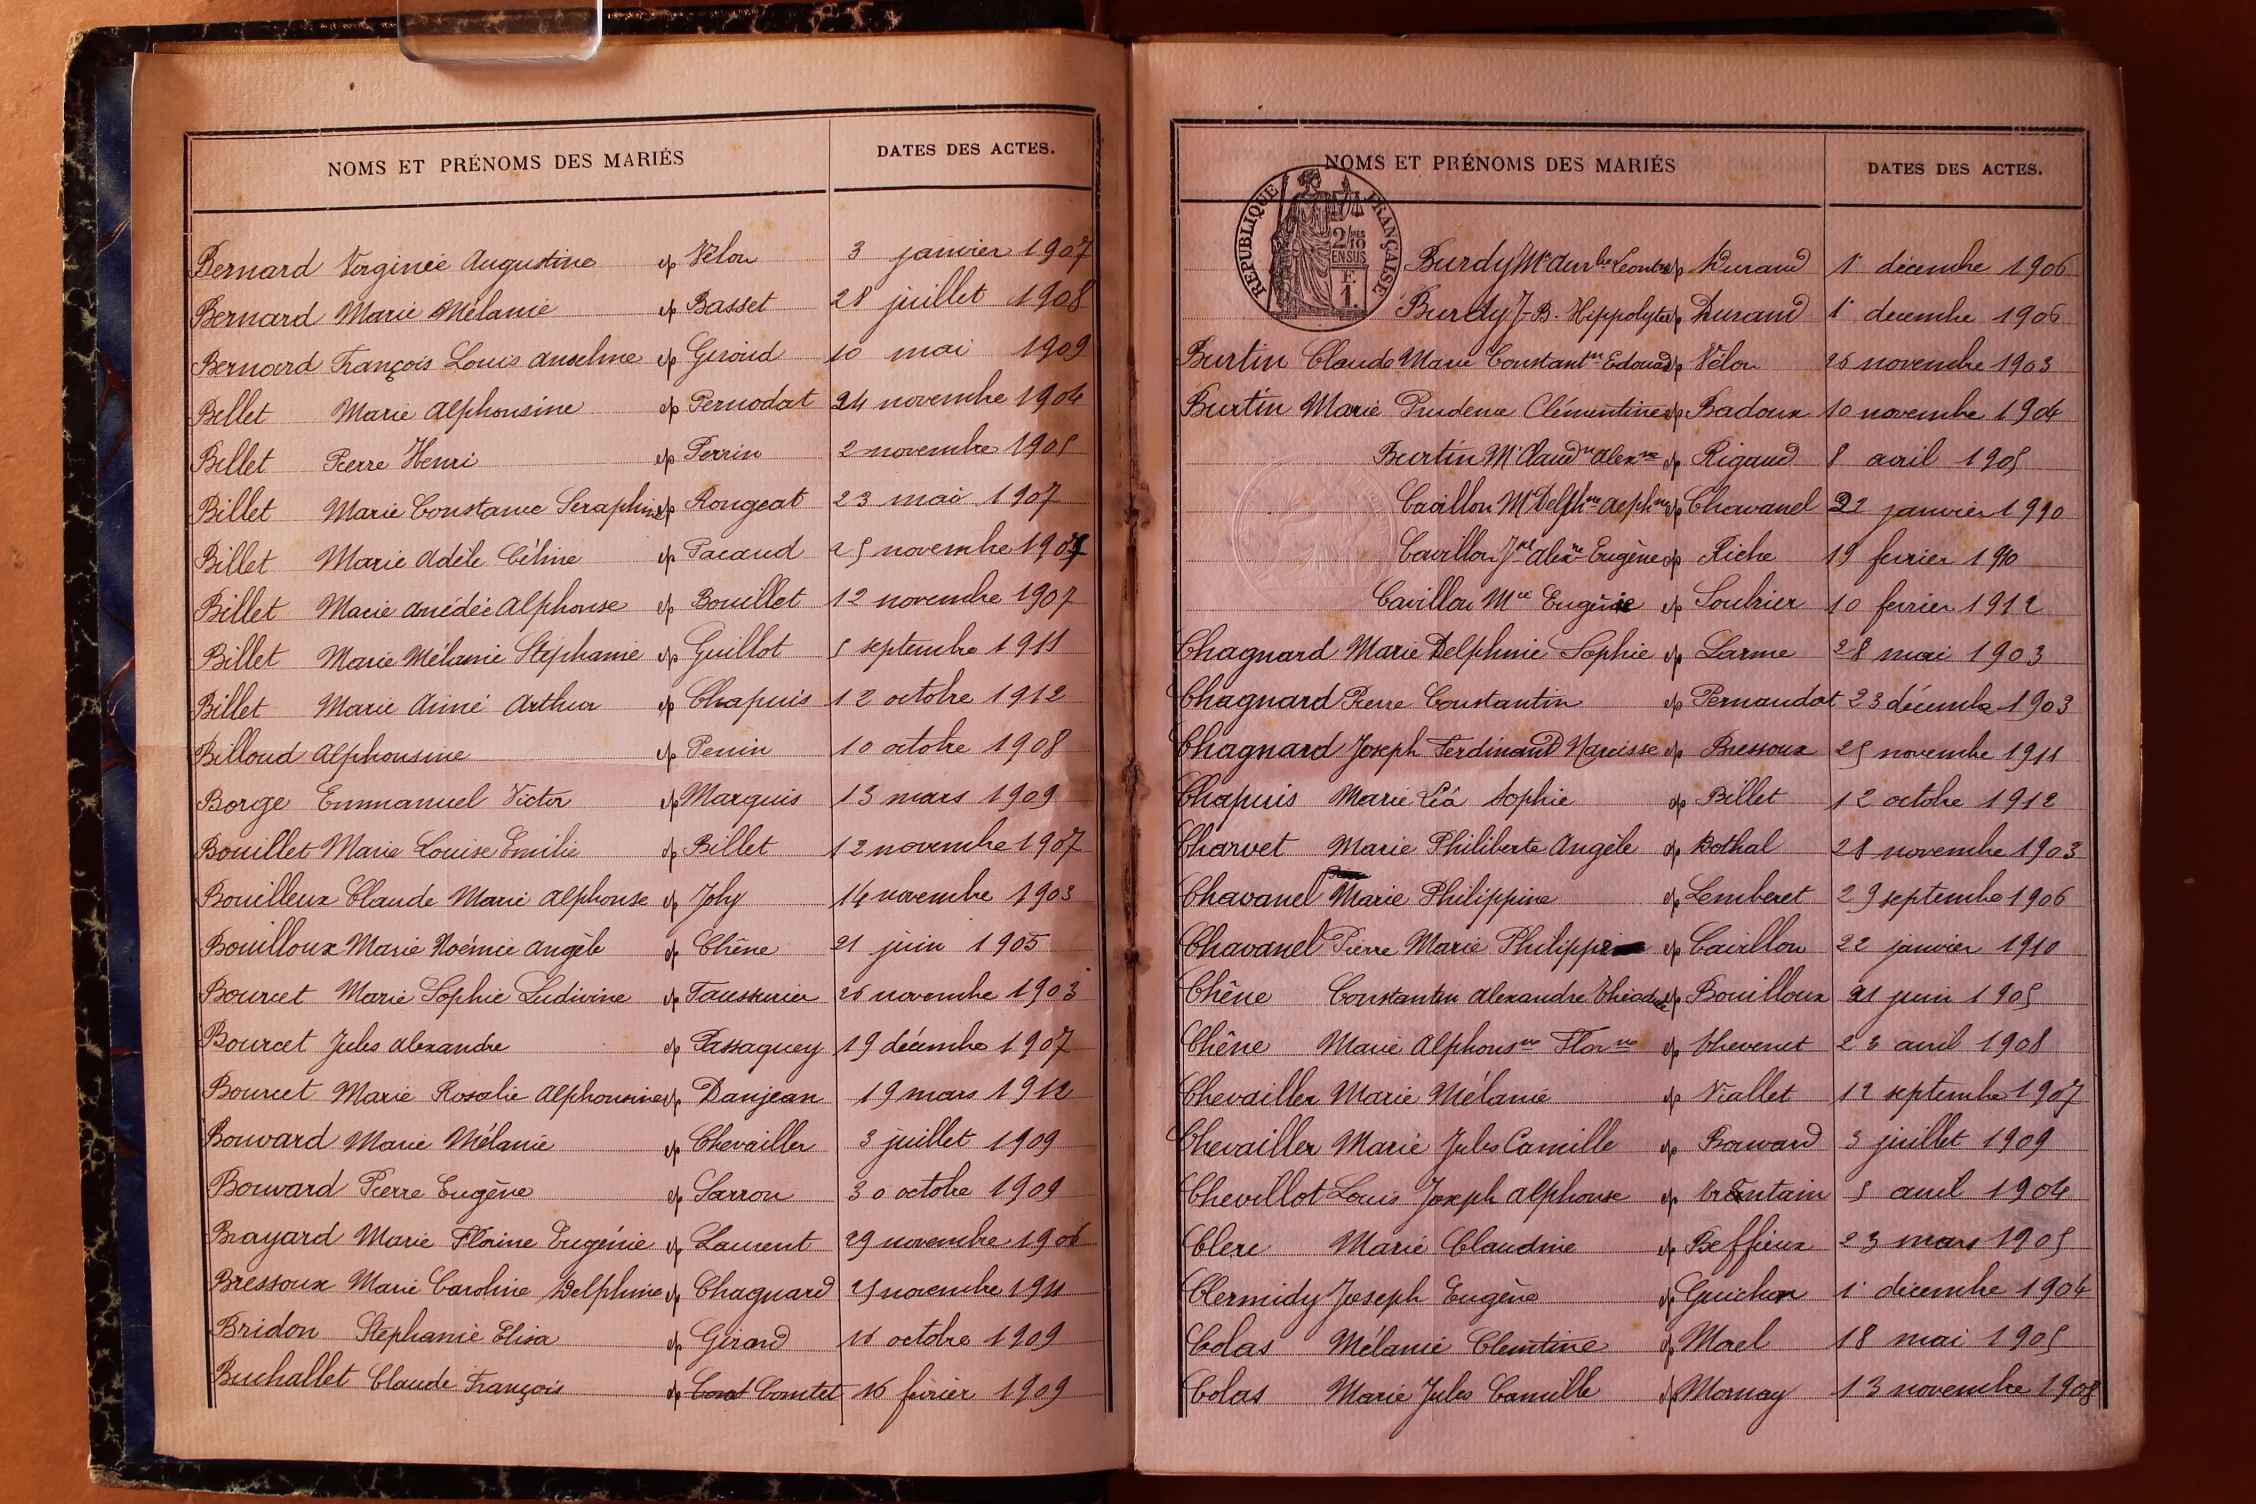 NOMS ET PRÉNOMS DES MARIÉS DATES DES ACTES.
Bernard Virginie Augustine ép Vélon 3 janvier 1907
Bernard Marie Mélanie ép Basset 28 juillet 1908
Bernard François Louis Anselme ép Giroud 10 mai 1909
Billet Marie Alphonsine ép Pernodat 24 novembre 1904
Billet Pierre Henri ép Perrin 2 novembre 1905
Billet Marie Constance Seraphine ép Rongeat 23 mai 1907
Billet Marie Adèle Céline ép Pacaud 25 novembre
Billet Marie Amédée Alphonse ép Bouillet 12 novembre 1907
Billet Marie Mélanie Stéphanie ép Guillot 5 septembre 1911
Billet Marie Aimé Arthur ép Chapuis 12 octobre 1912
Billoud Alphonsine ép 10 octobre 1908
Borge Emmanuel Victor ép Marquis 13 mars 1909
Bouillet Marie Louise Emilie ép Billet 12 novembre 1907
Bouilleux Claude Marie Alphonse ép Joly 14 novembre 1903
Bouilloux Marie Noémie Angèle ép Chêne 21 juin 1905
Bourcet Marie Sophie Ludivine ép 26 novembre 1903
Bourcet Jules Alexandre ép Passaquey 19 décembre 1907
Bourcet Marie Rosalie Alphonsine ép Danjean 19 mars 1912
Bouvard Marie Mélanie ép Chevailler 3 juillet 1909
Bouvard Pierre Eugène ép Sarron 30 octobre 1909
Brayard Marie Florine Eugénie ép Laurent 29 novembre 1906
Bressoux Marie Caroline Delphine ép Chagnard 25 novembre 1911
Bridon Stéphanie Elisa ép Girard 16 octobre 1909
Buchallet Claude François ép Comtet 16 février 1909
NOMS ET PRÉNOMS DES MARIÉS DATES DES ACTES.
RÉPUBLIQUE FRANÇAISE
2/10 EN SUS
F. 1.
Burdy Leontine ép Durand 1er décembre 1906
Burdy J-B. Hippolyte ép Durand 1er decembre 1906
Burtin Claude Marie Constantin Edouard ép Vélon 26 novembre 1903
Burtin Marie Prudence Clémentine ép Badoux 10 novembre 1904
Burtin Mie Claudne Alexne ép Rigaud 8 avril 1905
Cavillon Mie Delphne ép Chavanel 22 janvier 1910
Cavillon Jph Alexre Eugène ép Riche 19 fevrier 1910
Cavillon Mie Eugénie ép Soubrier 10 fevrier 1912
Chagnard Marie Delphine Sophie ép Larme 28 mai 1903
Chagnard Pierre Constantin ép Pernaudat 23 décembre 1903
Chagnard Joseph Ferdinand Narcisse ép Bressoux 25 novembre 1911
Chapuis Marie Léa Sophie ép Billet 12 octobre 1912
Charvet Marie Philiberte Angèle ép Bothal 28 novembre 1903
Chavanel Marie Philippine ép Lemberet 29 septembre 1906
Chavanel Pierre Marie Philippe ép Cavillon 22 janvier 1910
Chêne Constantin Alexandre Théodule ép Bouilloux 21 juin 1905
Chêne Marie Alphonsne Florne ép Thevenet 23 avril 1908
Chevailler Marie Mélanie ép Viallet 12 septembre 1907
Chevailler Marie Jules Camille ép Bouvard 3 juillet 1909
Chevillot Louis Joseph Alphonse ép Trontain 5 avril 1904
Clerc Marie Claudine ép Beffieux 23 mars 1905
Clermidy Joseph Eugène ép Guichon 1er décembre 1904
Colas Mélanie Clemtine ép Morel 18 mai 1905
Colas Marie Jules Camille ép Mornay 13 novembre 1908